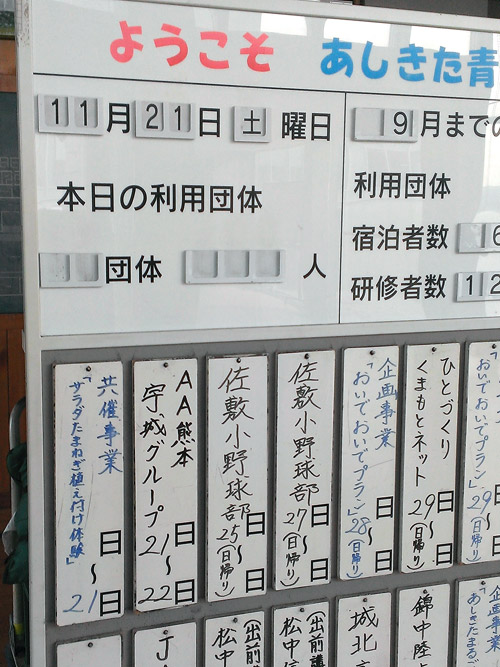 ようこそ あしきた青
11月21日 土 曜日
本日の利用団体
団体 人
9月までの
利用団体
宿泊者数 6
研修者数 12
おいでおいでプラン」
29(日帰り)
ひとづくり
くまもとネット
29～日(日帰り)
企画事業
「おいでおいでプラン」
日～日
28(日帰り)
佐敷小野球部
日～日
27(日帰り)
佐敷小野球部
日～日
25(日帰り)
AA熊本
宇城グループ
日～日
21 22
共催事業
「サラダたまねぎ植え付け体験」
日～日
21
企画事業
「あしきたまるご
錦中陸
城北
(出前講
松中
(出前
松中
J